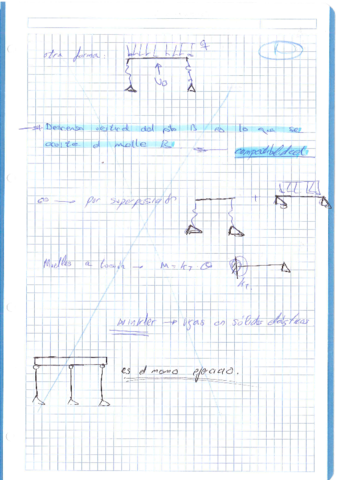 otra forma: q
v0
→ Descenso vertical del pto B es lo que se
acorta el muelle B
compatibilidad
→ por superposición
+
Muelles a torsión → M = kT θ
kT
Winkler → vigas en sólido elástico
es el mismo ejercicio.